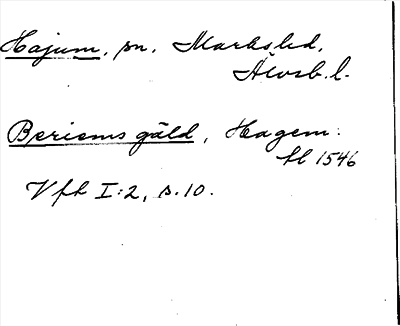 Hajum, sn, Marks hd,
Älvsb. l.
Beriems gäld, Hagem:
hl 1546
Vfh I:2, s. 10.